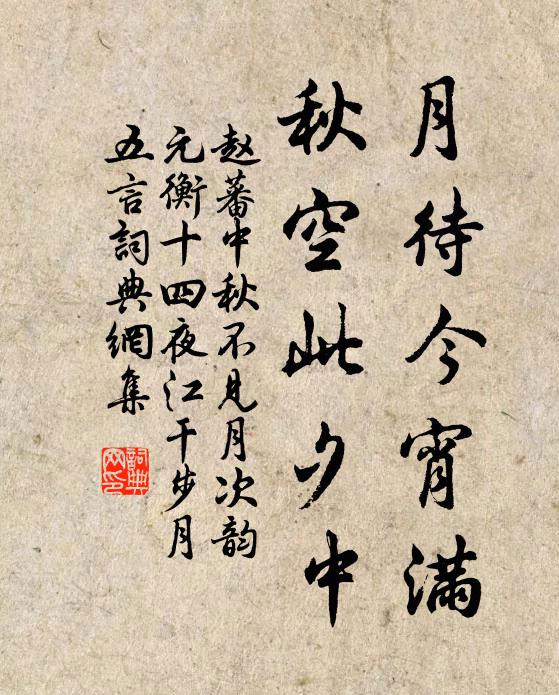 月待今宵满
秋空此夕中
赵蕃中秋不见月次韵
元衡十四夜江干步月
五言詞典網集
詞典
网印